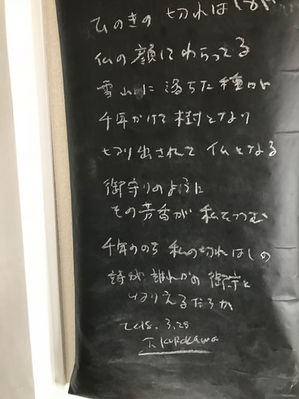 ひのきの 切れはしが
仏の顔にわらってる
雪山に 落ちた 種から
千年かけて 樹となり
切り出されて 仏となる
御守りのように
その芳香が 私をつつむ
千年ののち 私の切れはしの
詩が 誰れかの 御守と
なりえるだろか
2018. 3.28
T. Kurokawa